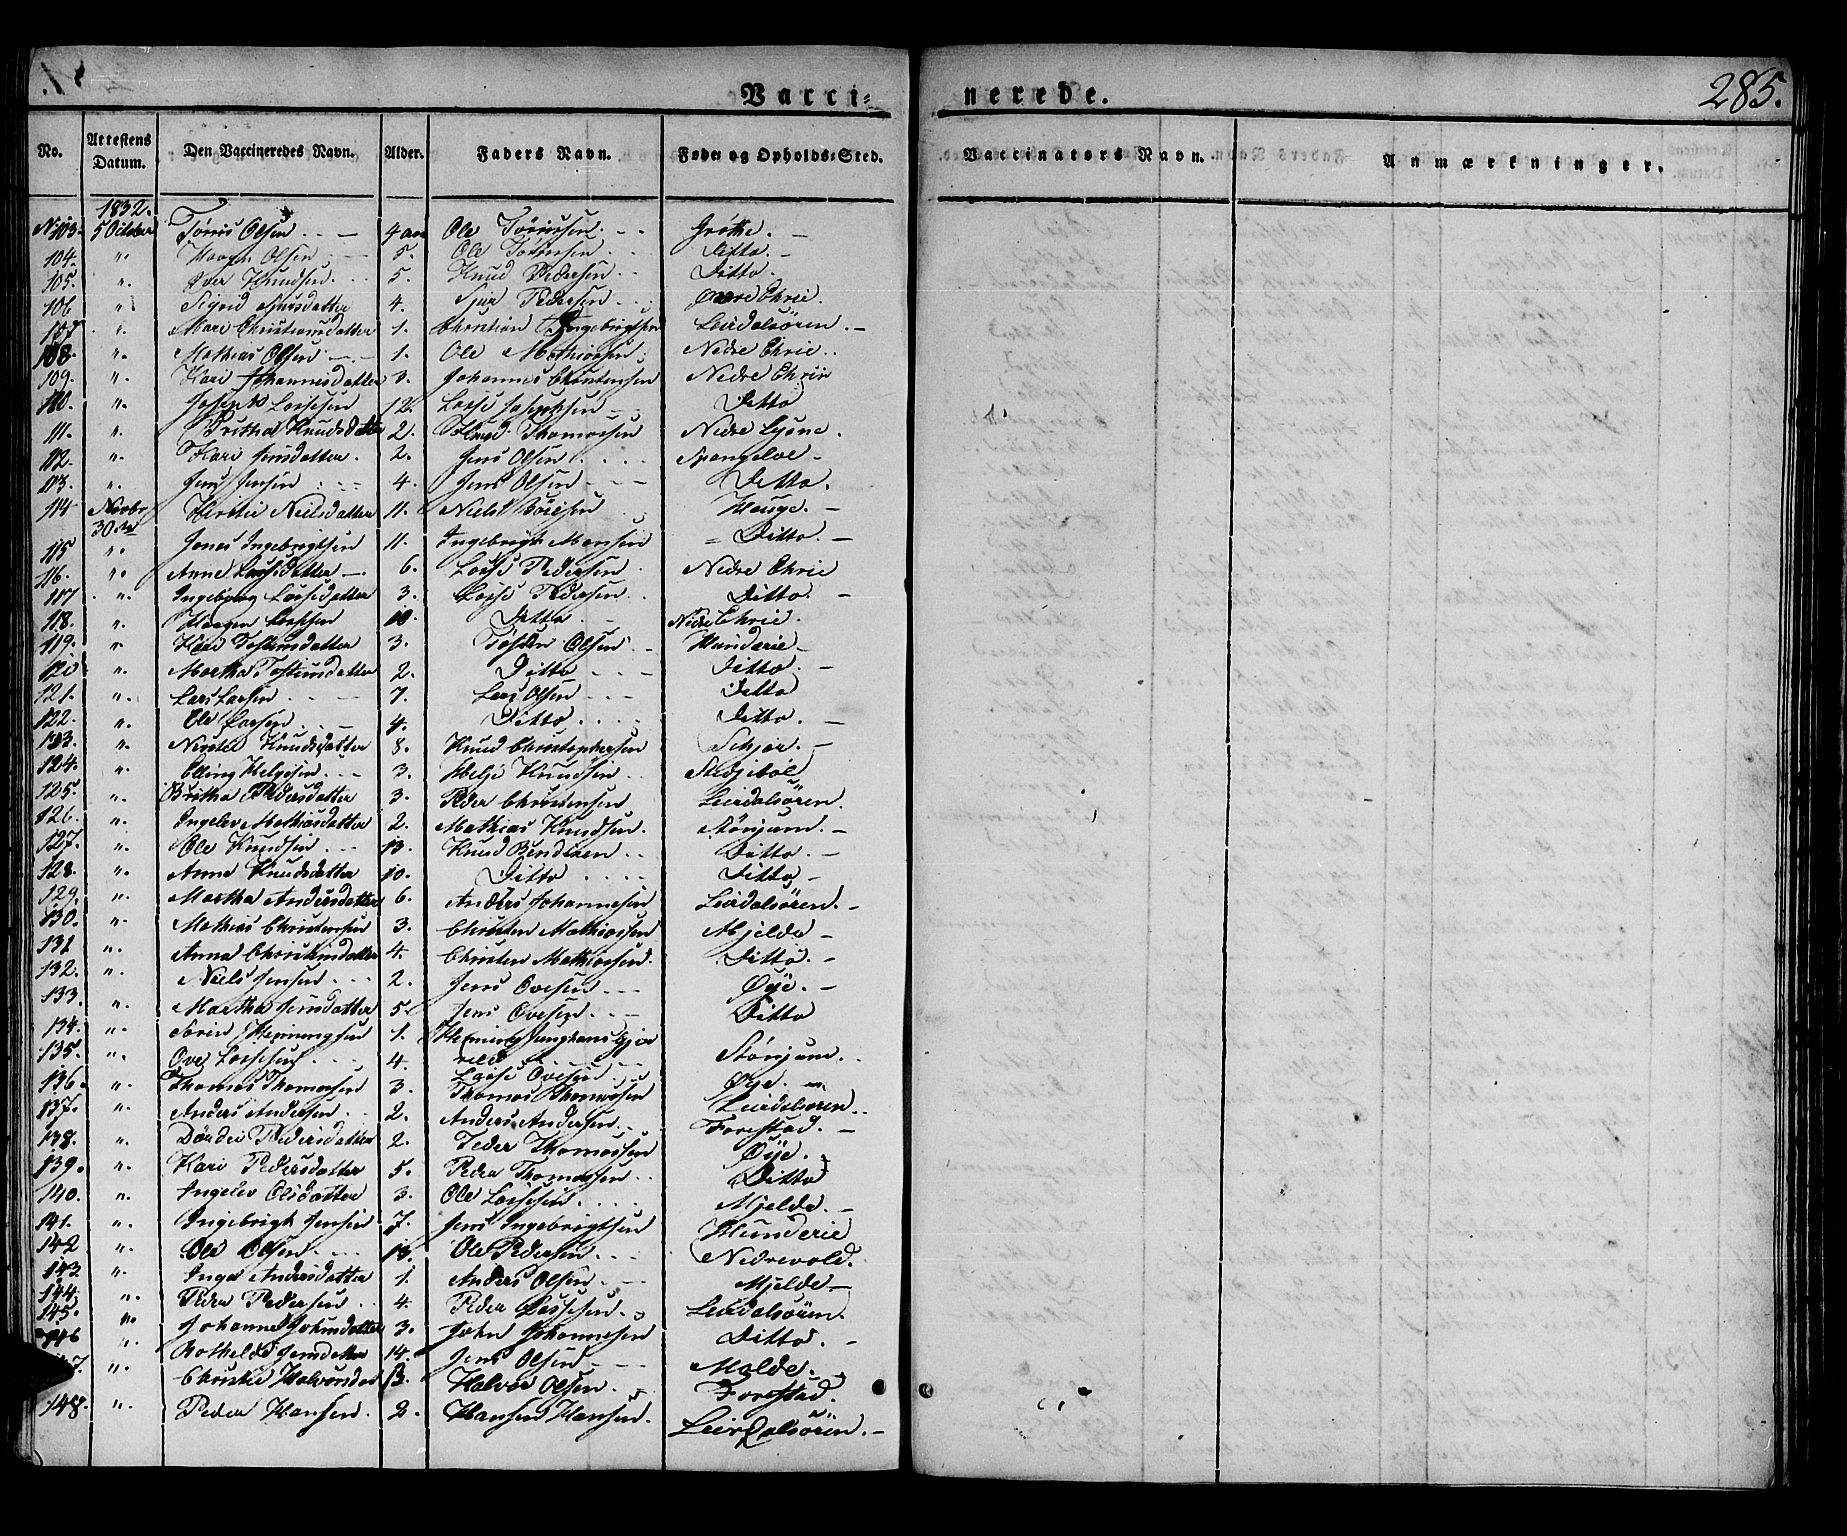 Vacci- nerede. 285.
No. Attestens Datum. Den Vaccineredes Navn. Alder. Faders Navn. Føde- og Opholds-Sted. Vaccinators Navn. Anmærkninger.
1832.
No 103. 5 October Tørris Olsen 4 aar Ole Tørrissen Grøtte.
104. " Haagen Olsen 5. Ole Tørrissen Ditto.
105. " Iver Knudsen 5. Knud Pedersen Ditto.
106 " Sigrid Sjursdatter 4. Sjur Pedersen Øvre Ehrie.
107 " Mari Christiansdatter 1. Christian Ingebrigtsen Leirdalsören.
108. " Mathias Olsen 1. Ole Mathiassen Nedre Ehrie.
109. " Kari Johannesdatter 3. Johannes Christensen Nedre Ehrie
110. " Joseph Lassesen 12. Lasse Josephsen Ditto
111. " Britha Knudsdatter 2. Knud Thomassen Nedre Lysne.
112. " Kari Jensdatter. 2. Jens Olsen Spangeloe
113. " Jens Jensen 4. Jens Olsen Ditto.
114 Novbr 30te Kirstie Nielsdatter 11. Niels Hauge.
115 " Jones Ingebrigtsen 11. Ingebrigt Monsen Ditto.
116. " Anne Lassedatter 6. Lasse Pedersen Nedre Ehrie
117 " Ingeborg Lassedatter 3. Lasse Pedersen Ditto.
118. " Haagen Lassesen 10. Ditto Nedre Ehrie.
119. " Kari Tostensdatter 3. Tosten Olsen Hunderie
120 " Martha Tostensdatter 2. Ditto Ditto.
121. " Lars Larsen 7. Lars Olsen Ditto
122. " Ole Larsen 4. Ditto Ditto.
123. " Kirstie Knudsdatter 8. Knud Christophersen Schjør.
124. " Elling Helgesen 3. Helge Knudsen
125. " Britha Pedersdatter 3. Peder Christensen Leirdalsören.
126. " Ingelev Mathiasdatter 2. Mathias Knudsen. Stønjum.
127. " Ole Knudsen 13. Knud Bendixen Ditto.
128. " Anne Knudsdatter 10. Ditto Ditto
129. " Martha Andersdatter 6. Anders Johannesen Leirdalsören.
130. " Mathias Christensen 3. Christen Mathiassen Mjelde
131 " Anna Christensdatter 4. Christen Mathiassen. Ditto.
132. " Niels Jensen 2. Jens Ovesen Øÿe.
133. " Martha Jensdatter 5. Jens Ovesen Ditto
134. " Sören Hemmingsen 1. Hemming Junghans
135. " Ove Lassesen 4. Lasse Ovesen Stønjum.
136. " Thomas Thomassen 3. Thomas Thomassen Øye.
137. " Anders Andersen 2. Anders Andersen Leirdalsören
138. " Dordei Pedersdatter 2. Peder Thomassen Forestad.
139. " Kari Pedersdatter 5. Peder Thomassen Øÿe.
140. " Ingelev Olsdatter 3. Ole Lassesen Ditto
141. " Ingebrigt Jensen 7. Jens Ingebrigtsen Mjelde.
142 " Ole Olsen 13. Ole Pedersen Hunderie
143. " Inger Andersdatter 1. Anders Olsen Nedrevold.
144. " Peder Pedersen 4. Peder Lassesen Mjelde
145. " Johanne Johnsdatter 3. John Johannesen Leirdalsören.
146 " Bothelde Jensdatter 14. Jens Olsen Ditto
147. " Christie Halvorsdat 13. Halvor Olsen Molde
Forestad.
148. " Peder Hansen 2. Hansen Hansen. Leirdalsören.